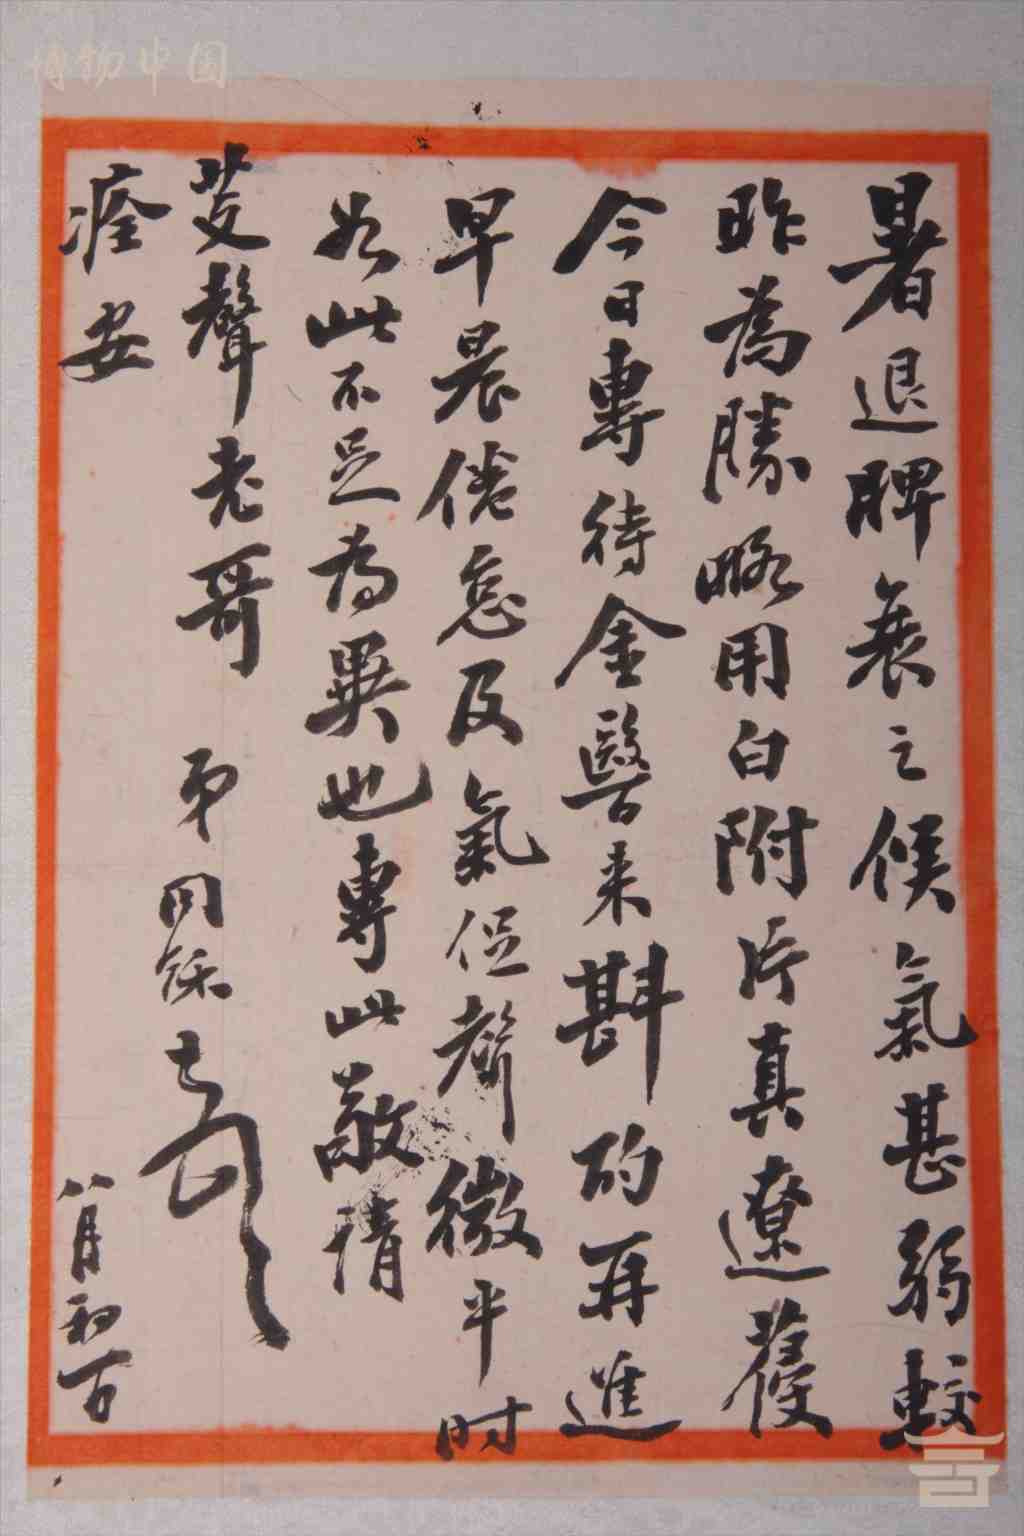 博物中国
暑退脾衰之候氣甚弱較
昨為勝略用白附片真遼葠
今日專待金醫来斟酌再進
早晨倦怠及氣促聲微平时
如此不足為異也專此敬請
芰聲老哥 弟同龢頓首
痊安 八月初一日